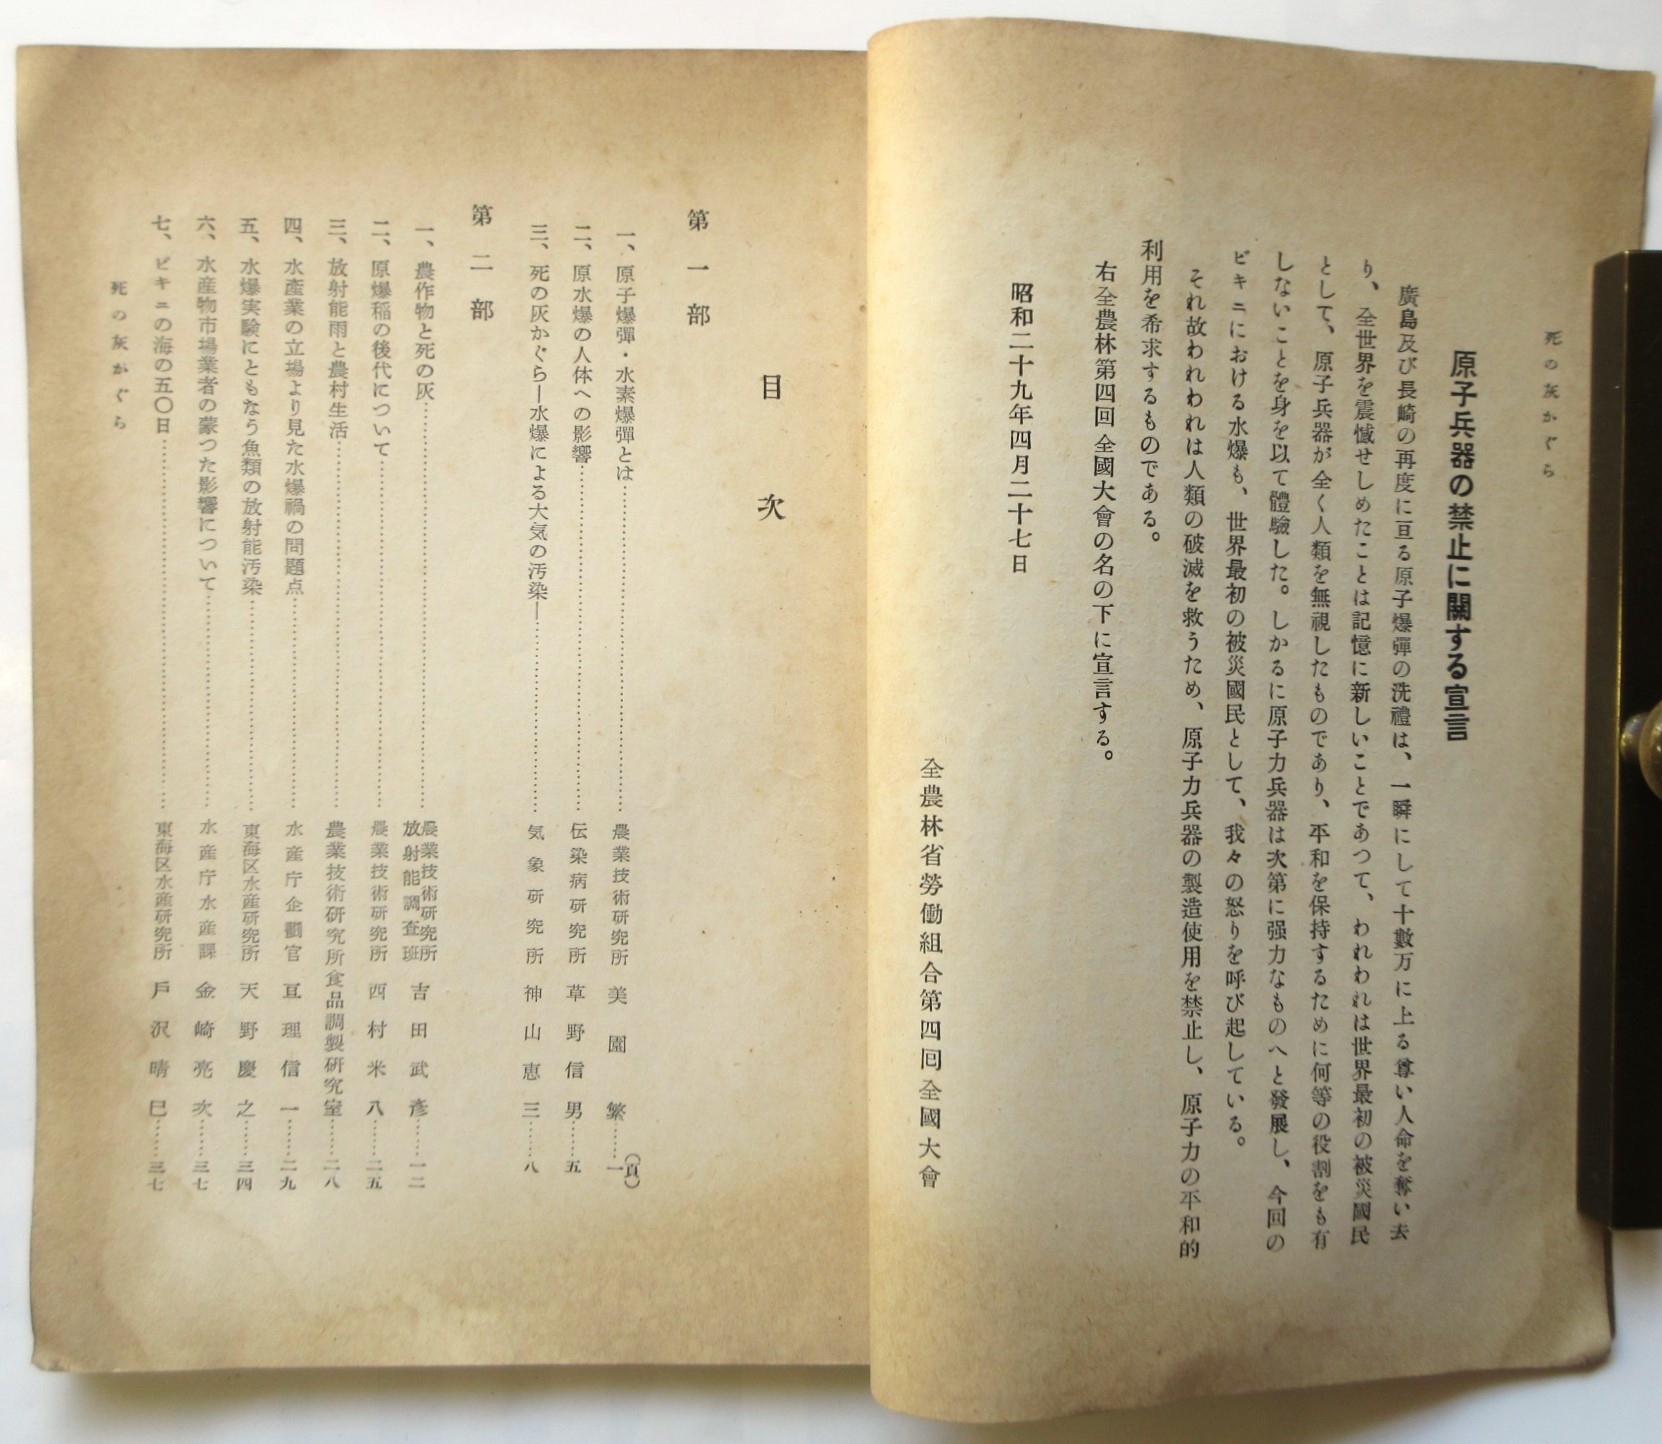 死の灰かぐら
原子兵器の禁止に關する宣言
廣島及び長崎の再度に亘る原子爆彈の洗禮は、一瞬にして十數万に上る尊い人命を奪い去
り、全世界を震憾せしめたことは記憶に新しいことであつて、われわれは世界最初の被災國民
として、原子兵器が全く人類を無視したものであり、平和を保持するために何等の役割をも有
しないことを身を以て體驗した。しかるに原子力兵器は次第に强力なものへと發展し、今回の
ビキニにおける水爆も、世界最初の被災國民として、我々の怒りを呼び起している。
それ故われわれは人類の破滅を救うため、原子力兵器の製造使用を禁止し、原子力の平和的
利用を希求するものである。
右全農林第四回全國大會の名の下に宣言する。
昭和二十九年四月二十七日
全農林省勞働組合第四回全國大會
目次
第一部
一、原子爆彈・水素爆彈とは……農業技術研究所 美園繁……一(頁)
二、原水爆の人体への影響……伝染病研究所 草野信男……五
三、死の灰かぐら―水爆による大気の汚染―……気象研究所 神山恵三……八
第二部
一、農作物と死の灰……農業技術研究所放射能調査班 吉田武彥……一二
二、原爆稲の後代について……農業技術研究所 西村米八……二五
三、放射能雨と農村生活……農業技術研究所食品調製研究室……二八
四、水產業の立場より見た水爆禍の問題点……水産庁企劃官 亘理信一……二九
五、水爆実験にともなう魚類の放射能汚染……東海区水産研究所 天野慶之……三四
六、水産物市場業者の蒙つた影響について……水産庁水産課 金崎亮次……三七
七、ビキニの海の五〇日……東海区水産研究所 戶沢晴巳……三七
死の灰かぐら